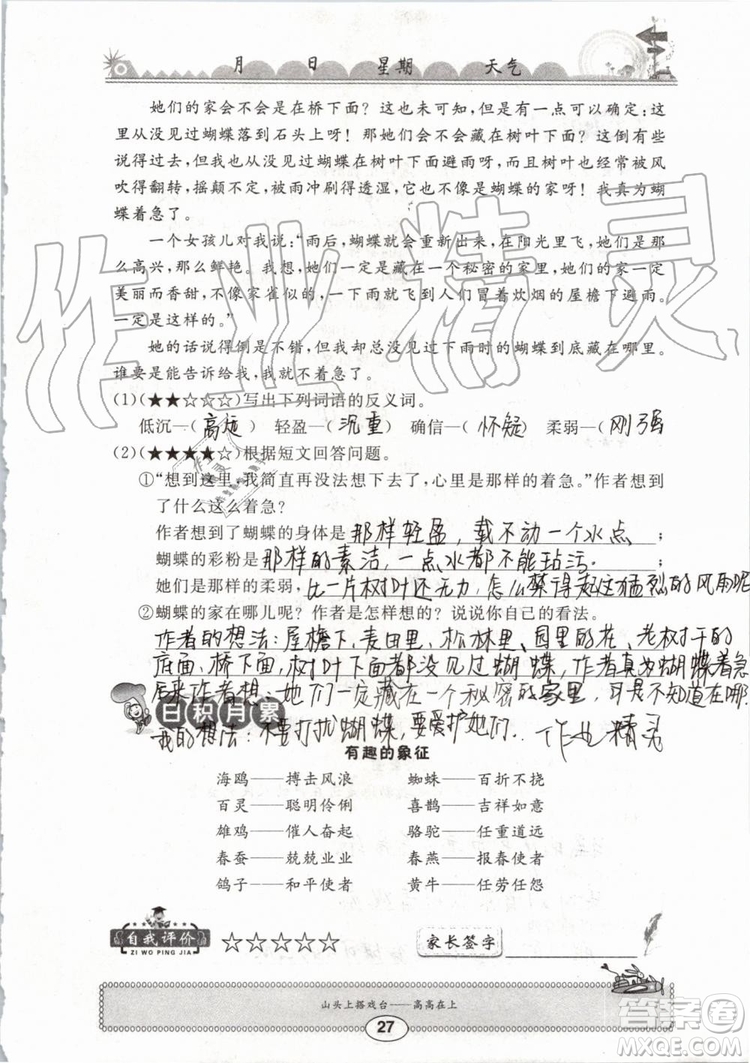 月 日 星期 天气
她们的家会不会是在桥下面？这也未可知，有一点可以确定：这
里从没见过蝴蝶落到石头上呀！那她们会不会藏在树叶下面？这倒有
说得过去，从没见过蝴蝶在树叶下面避雨呀，而且树叶也经常被风
吹得翻转，摇颠不定，被雨冲刷得透湿，它不可能是蝴蝶的家呀！我真为蝴
蝶着急了。
一个女孩儿对我说：“雨后，蝴蝶就会重新出来，在阳光里飞，她们是那
么高兴，那么鲜艳。我想，她们一定是藏在一个秘密的家里，她们的家一定
美丽而香甜，不像家雀似的，一下雨就飞到人们冒着炊烟的屋檐下避雨。
一定是这样的。”
她的话说得倒是不错，但我从没见过下雨时的蝴蝶到底藏在哪里。
谁要是能告诉给我，我就不着急了。
(1)(★★☆☆☆)写出下列词语的反义词。
低沉—(高亢) 轻盈—(沉重) 确信—(怀疑) 柔弱—(刚强)
(2)(★★★★☆)根据短文回答问题。
①“想到这里，我简直再没法想下去了，心里是那样的着急。”作者想到
了什么这么着急？
作者想到了蝴蝶的身体是那样轻盈，载不动一个水点；
蝴蝶的彩粉是那样的素洁，一点水都不能玷污。
她们是那样的柔弱，比一片树叶还无力，怎么禁得起这猛烈的风雨呢
②蝴蝶的家在哪儿呢？作者是怎样想的？说说你自己的看法。
作者的想法：屋檐下、麦田里、松林里、园里的花、老树干的
底面、桥下面、树叶下面都没见过蝴蝶，作者真为蝴蝶着急
后来作者想：她们一定藏在一个秘密的家里，可是不知在哪
日积月累
我的想法：不要打扰蝴蝶，要爱护她们。 作业精灵
有趣的象征
海鸥——搏击风浪 蜘蛛——百折不挠
百灵——聪明伶俐 喜鹊——吉祥如意
雄鸡——催人奋起 骆驼——任重道远
春蚕——兢兢业业 春燕——报春使者
鸽子——和平使者 黄牛——任劳任怨
自我评价 ☆☆☆☆☆ 家长签字
ZI WO PING JIA
山头上搭戏台——高高在上
27
作业精灵
答案圈
MXQE.COM